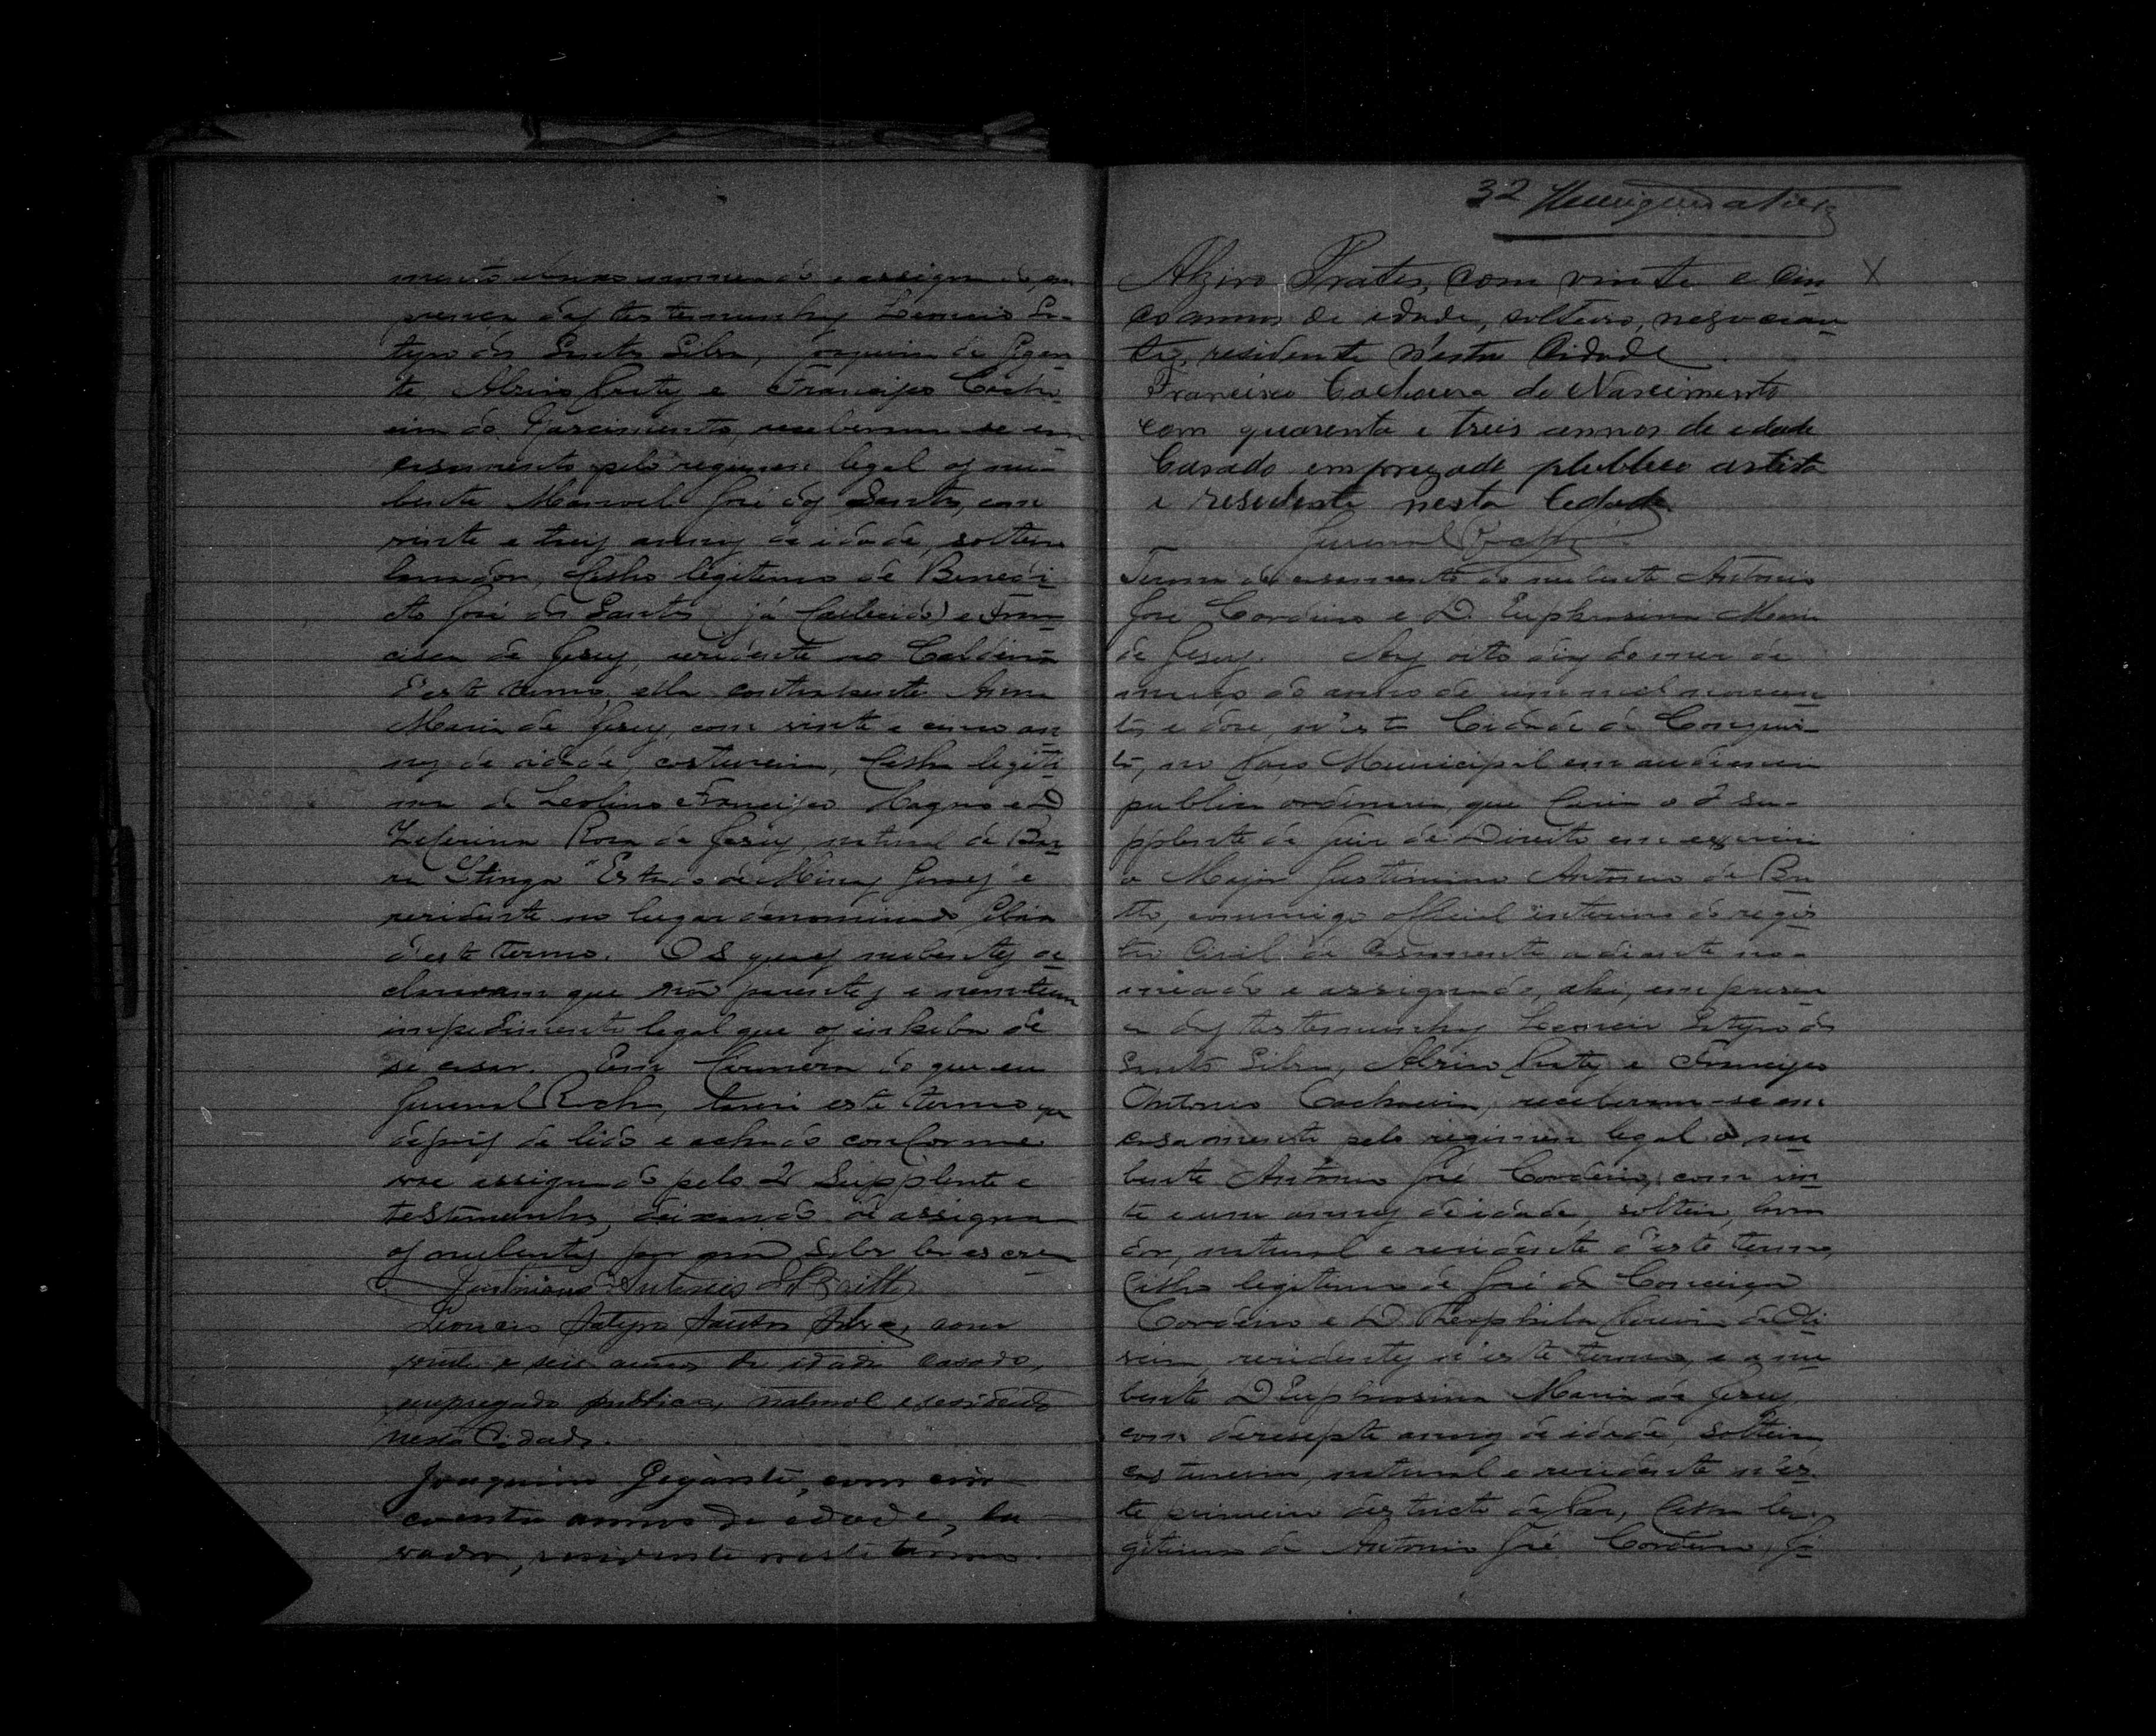 presença das testemunhas Leoncio Sa-
tyro dos Santos Silva, Joaquim de Gigan
te, Alziro Prates e Francisco Cacho
eira do Nascimento, receberam-se em
casamento pelo regimen legal os nu-
bente Manoel José dos Santos, com
vinte e trez annos de idade, solteiro
lavrador, filho legitimo de Benedi
cto José dos Santos (já fallecido) e Fran
cisca de Jesus, residente no
d'este termo, ella contrahente Anna
Maria de Jesus, com vinte e cinco an
nos de idade, costureira, filha legiti
ma de Leolino Francisco Magno e D
Zeferina Rosa de Jesus, natural de
Estado de Minas Geraes e
residente no lugar denominado
d'este termo. Os quaes nubentes de
clararam que não parentes e nem tem
impedimento legal que os inhiba de
se casar. Em firmeza do que eu
Juvenal Rocha, lavrei este termo que
depois de lido e achado conforme
vae assignado pelo 2º Supplente e
testemunhas, deixando de assignar
os nubentes por não saber ler escre
Justiniano Antonio de Britto
Leoncio Satyro Santos Silva, com
vinte e seis annos de idade casado,
empregado publico, natural e residente
nesta Cidade.
Joaquim Gigante, com cin
coenta annos de edade, la
vrador, residente neste termo.
32
Alziro Prates, com vinte e cin X
co annos de idade, solteiro, negocian
te, residente n'esta Cidade
Francisco Cachoeira do Nascimento
com quarenta e treis annos de edade
Casado empregado plublico artista
e residente nesta Cedade
Juvenal Rocha
Termo de casamento do nubente Antonio
José Cordeiro e D Euphrosina Maria
de Jesus. Aos oito dias do mez de
março do anno de um mil novecen
tos e doze, n'esta Cidade de Conquis
ta, no Paço Municipal em audiencia
publica ordinaria, que fazia o 2 su-
pplente de Juiz de Direito em exercicio
o Major Justiniano Antonio de Bri
tto, commigo official interino do regis
tro Civil de Casamento adiante no-
meado e assignado, ahi, em presen
ça das testemunhas Leoncio Satyro dos
Santos Silva, Alziro Prates e Francisco
Antonio Cachoeira, receberam-se em
casamento pelo regimen legal o nu
bente Antonio José Cordeiro, com vin
te e um annos de idade, solteiro, lavra
dor, natural e residente d'este termo,
filho legitimo de José da Conceição
Cordeiro e D Theophila Maria de Oli
veira, residentes n'este termo, e a nu
bente D Euphrosina Maria de Jesus
com desesepte annos de idade, solteira,
costureira, natural e residente n'es
te primeiro destricto de Paz, filha le
gitima de Antonio José Cordeiro, já